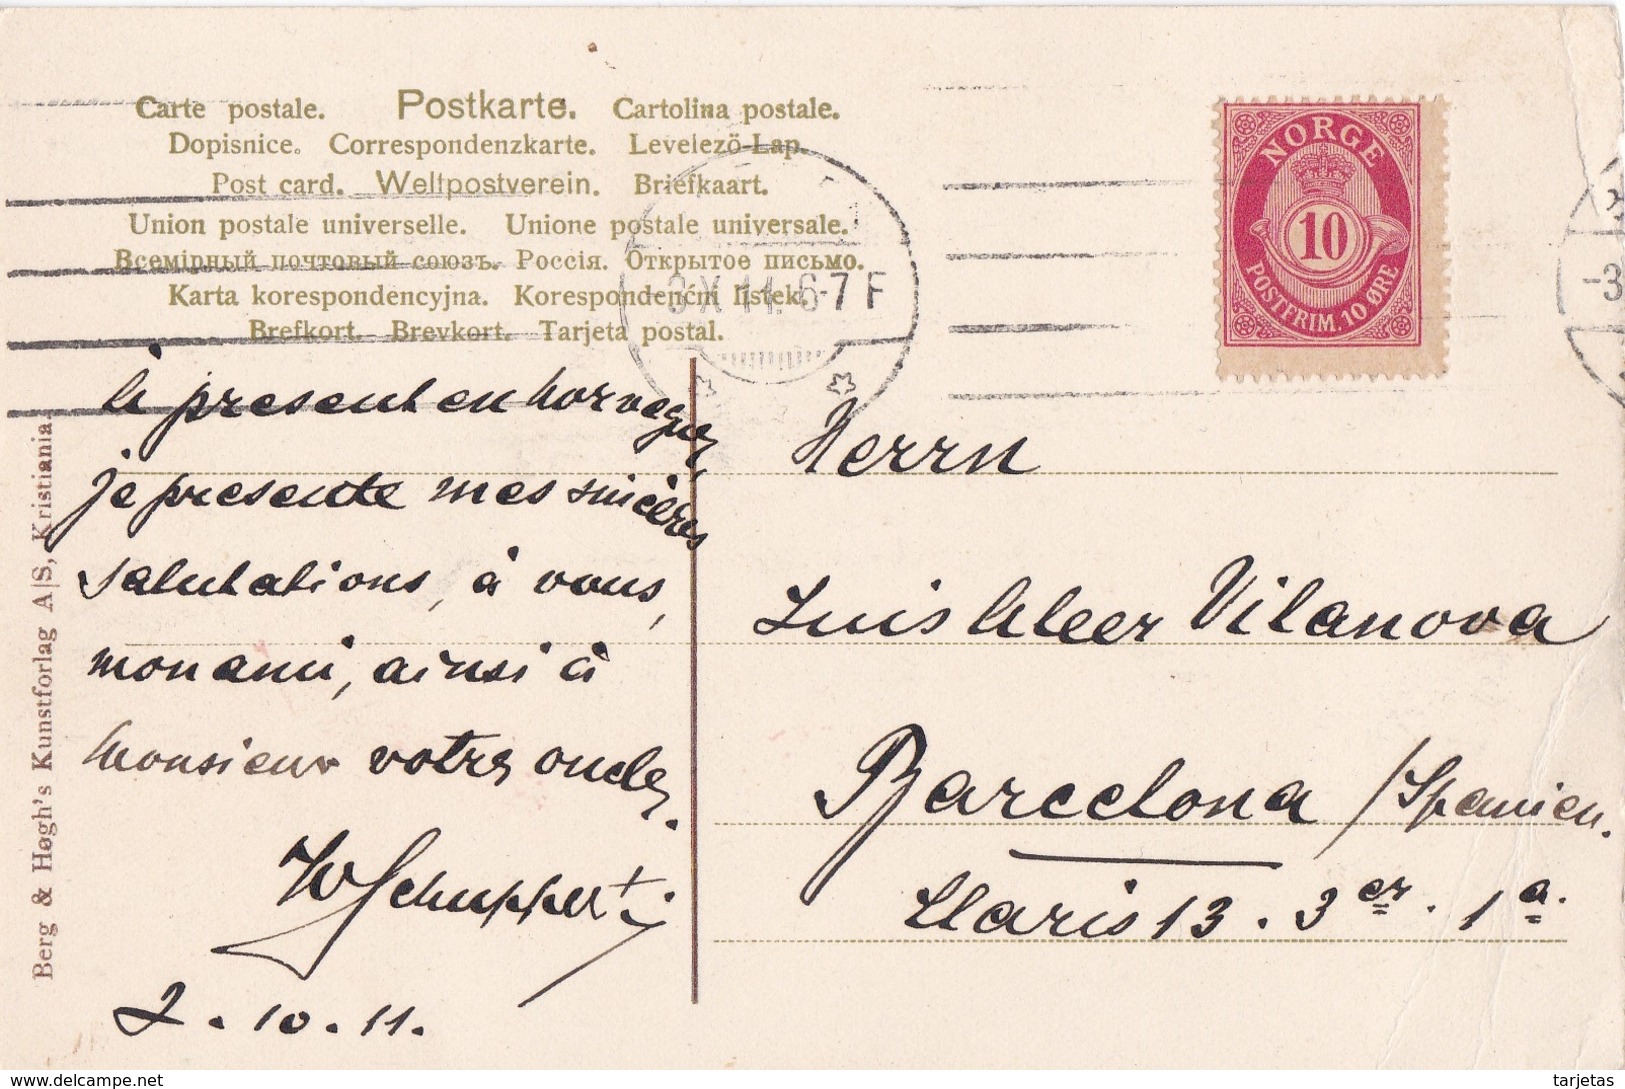 Carte postale. Postkarte. Cartolina postale.
Dopisnice. Correspondenzkarte. Levelező-Lap.
Post card. Weltpostverein. Briefkaart.
Union postale universelle. Unione postale universale.
Всемірный почтовый союзъ. Россія. Открытое письмо.
Karta korespondencyjna. Korespondenčni listek.
Brefkort. Brevkort. Tarjeta postal.
-3 X 11. 6-7 F
NORGE
10
POSTFRIM. 10 ØRE
-3
à present en norvegue,
je presente mes sincères
salutations, à vous,
mon ami, ainsi à
monsieur votre oncle.
W Schuppert
2.10.11.
Herrn
Luis Vilanova
Barcelona / Spanien.
Llaris 13. 3er. 1a.
Berg & Høgh's Kunstforlag A|S, Kristiania.
delcampe.net
tarjetas